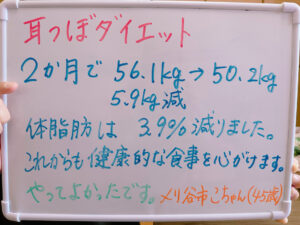 耳つぼダイエット
2か月で 56.1kg→50.2kg
5.9kg減
体脂肪は 3.9%減りました。
これからも健康的な食事を心がけます。
やってよかったです。 メリ谷市 こちゃん(45歳)